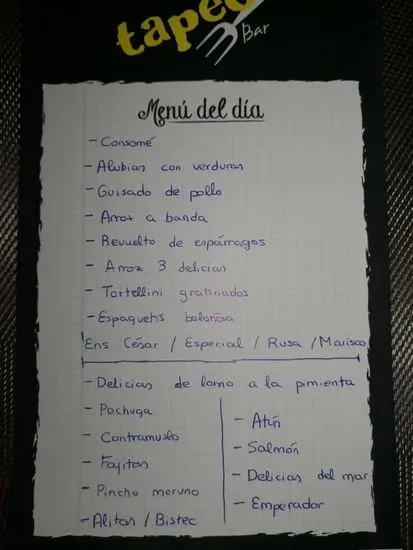 tapeo
Bar
Menú del día
- Consomé
- Alubias con verduras
- Guisado de pollo
- Arroz a banda
- Revuelto de espárragos
- Arroz 3 delicias
- Tortellini gratinados
- Espaguetis boloñesa
Ens. César / Especial / Rusa / Marisco
- Delicias de lomo a la pimienta
- Pechuga
- Contramuslo
- Fajitas
- Pincho moruno
- Alitas / Bistec
- Atún
- Salmón
- Delicias del mar
- Emperador